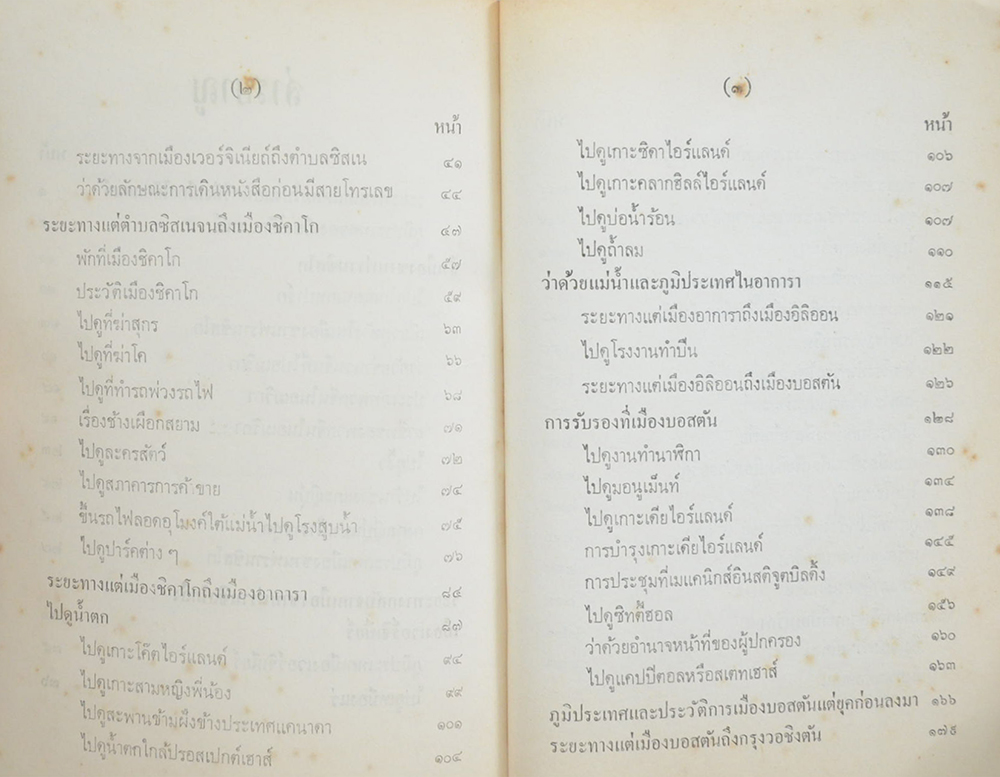 (๒)
หน้า
ระยะทางจากเมืองเวอร์จิเนียถ์ถึงตำบลซิสเน ๔๑
ว่าด้วยลักษณะการเดินหนังสือก่อนมีสายโทรเลข ๔๔
ระยะทางแต่ตำบลซิสเนจนถึงเมืองชิคาโก ๔๗
พักที่เมืองชิคาโก ๕๗
ประวัติเมืองชิคาโก ๕๙
ไปดูที่ฆ่าสุกร ๖๓
ไปดูที่ฆ่าโค ๖๖
ไปดูที่ทำรถพ่วงรถไฟ ๖๘
เรื่องช้างเผือกสยาม ๗๑
ไปดูละครสัตว์ ๗๒
ไปดูสภาคารการค้าขาย ๗๔
ขึ้นรถไฟลอดอุโมงค์ใต้แม่น้ำไปดูโรงสูบน้ำ ๗๕
ไปดูปาร์คต่าง ๆ ๗๖
ระยะทางแต่เมืองชิคาโกถึงเมืองอาการา ๘๔
ไปดูน้ำตก ๘๗
ไปดูเกาะโค๊ตไอร์แลนด์ ๙๔
ไปดูเกาะสามหญิงพี่น้อง ๙๙
ไปดูสะพานข้ามฝั่งข้างประเทศแคนาดา ๑๐๑
ไปดูน้ำตกใกล้ปรอสเปกต์เฮาส์ ๑๐๔
(๓)
หน้า
ไปดูเกาะซิดาไอร์แลนด์ ๑๐๖
ไปดูเกาะคลากฮิลล์ไอร์แลนด์ ๑๐๗
ไปดูบ่อน้ำร้อน ๑๐๗
ไปดูถ้ำลม ๑๑๐
ว่าด้วยแม่น้ำและภูมิประเทศในอาการา ๑๑๕
ระยะทางแต่เมืองอาการาถึงเมืองอิลิออน ๑๒๑
ไปดูโรงงานทำปืน ๑๒๒
ระยะทางแต่เมืองอิลิออนถึงเมืองบอสตัน ๑๒๖
การรับรองที่เมืองบอสตัน ๑๒๘
ไปดูงานทำนาฬิกา ๑๓๐
ไปดูมอนูเม็นท์ ๑๓๔
ไปดูเกาะเดียไอร์แลนด์ ๑๓๘
การบำรุงเกาะเดียไอร์แลนด์ ๑๔๕
การประชุมที่เมแคนิกส์อินสติจูตบิลดิ้ง ๑๔๙
ไปดูซิทตี้ฮอล ๑๕๖
ว่าด้วยอำนาจหน้าที่ของผู้ปกครอง ๑๖๐
ไปดูแคปปิตอลหรือสเตทเฮาส์ ๑๖๓
ภูมิประเทศและประวัติการเมืองบอสตันแต่ยุคก่อนลงมา ๑๖๖
ระยะทางแต่เมืองบอสตันถึงกรุงวอชิงตัน